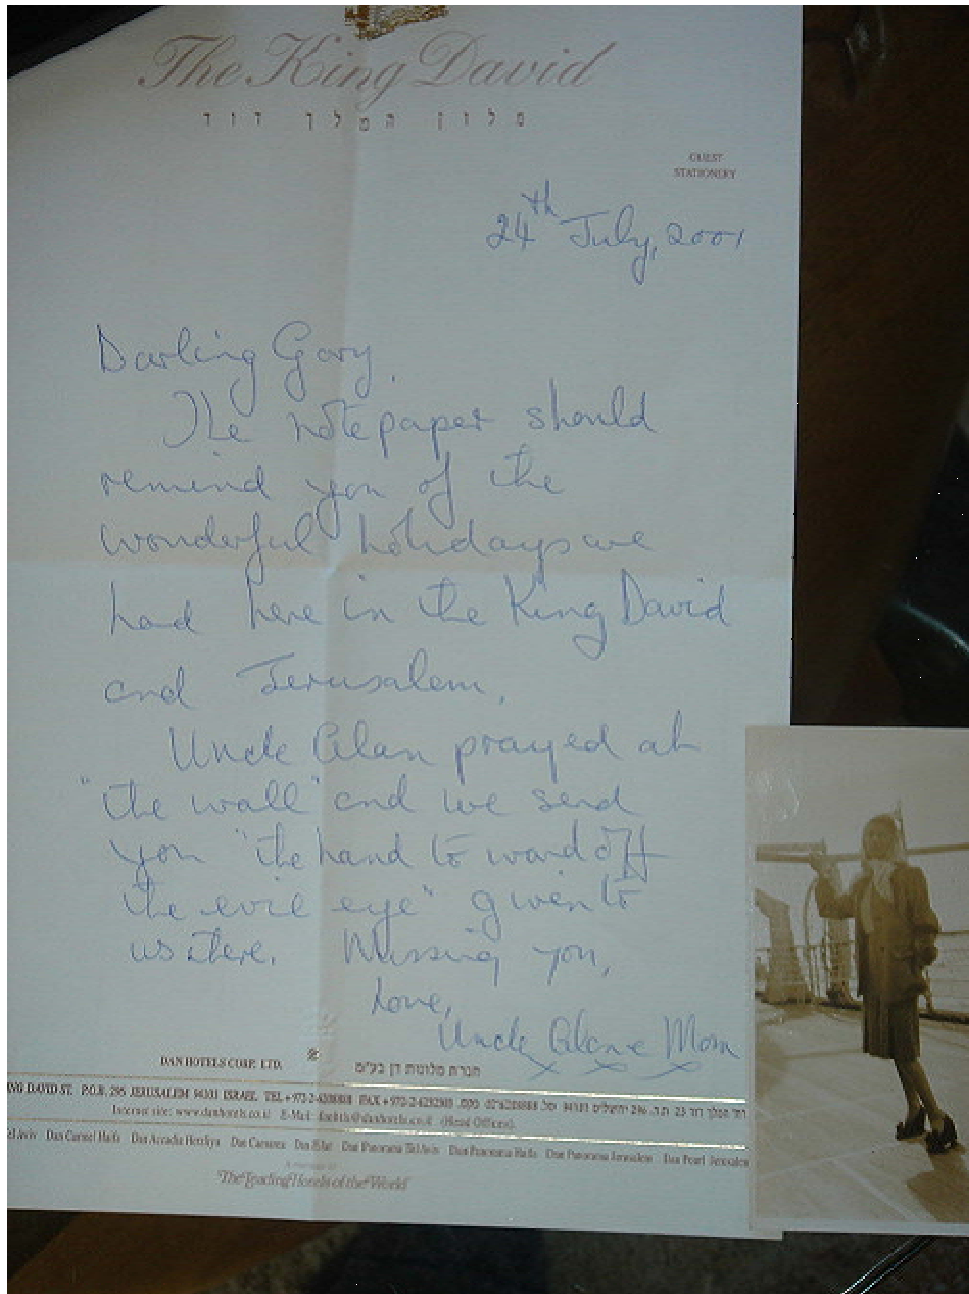 The King David
מלון המלך דוד
GUEST
STATIONERY
24th July, 2001
Darling Gary,
The notepaper should
remind you of the
wonderful holidays we
had here in the King David
and Jerusalem.
Uncle Alan prayed at
"the wall" and we send
you "the hand to ward off
the evil eye" given to
us there. Missing you,
Love,
Uncle Alan & Mom
x x x
DAN HOTELS CORP. LTD. חברת מלונות דן בע"מ
KING DAVID ST. P.O.B. 295 JERUSALEM 94101 ISRAEL TEL +972-2-6208888 FAX +972-2-6232303
Internet site: www.danhotels.co.il E-Mail: (Head Offices)
Tel Aviv Dan Carmel Haifa Dan Accadia Herzliya Dan Caesarea Dan Eilat Dan Panorama Tel Aviv Dan Panorama Haifa Dan Panorama Jerusalem Dan Pearl Jerusalem
A member of
The Leading Hotels of the World